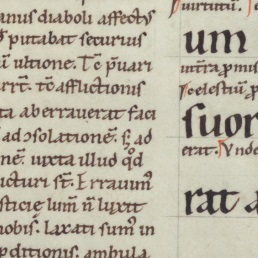 anus diaboli affectus
putabat securius
ũ ultione. Tõ p̃uari
rẽt. tõ afflictioni
ta aberrauerat faci
ad solationẽ. s; ad
onẽ. iuxta illud qd̃
icturi st̃. Errauim᷒
sticię lum̃ ñ luxit
nobis. Laxati sum᷒ in
pditionis. ambula
uirtutum̃.
um
uẽra pmis
celestiũ p
suor
erat. Vnde
rat a